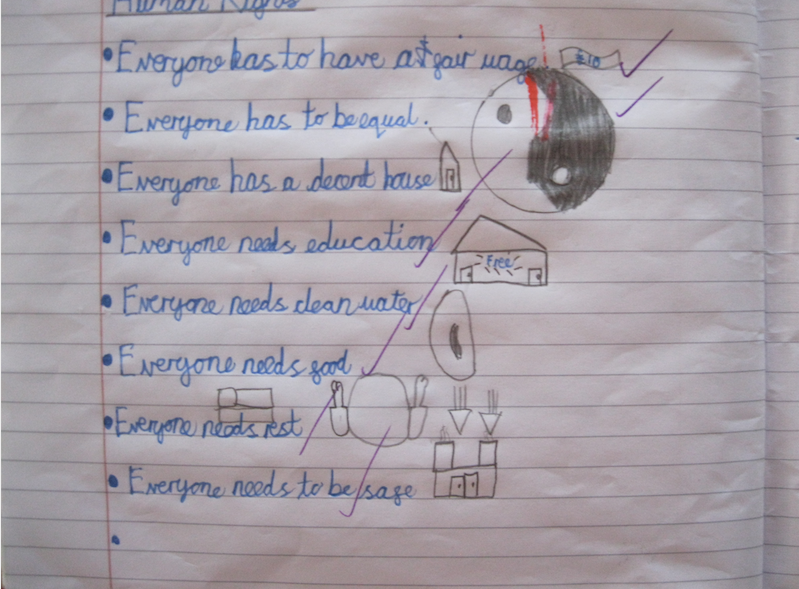 Human Rights
• Everyone has to have a fair wage £10
• Everyone has to be equal.
• Everyone has a decent house
• Everyone needs education Free
• Everyone needs clean water
• Everyone needs food
• Everyone needs rest
• Everyone needs to be safe
•